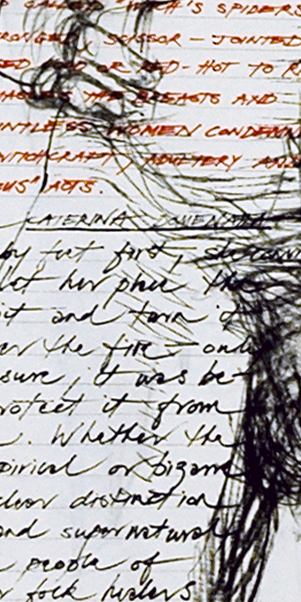 CALLED SPIDERS
SCISSOR – JOINTED
OR RED-HOT TO
THE BREASTS AND
NTLESS WOMEN CONDEMN
ADULTERY AND
US" ACTS.
CATERINA
by fut first,
let her place the
it and turn it
er the fire – only
sure, it was be
rotect it from
. Whether the
pirical or bizarre
clear distinction
and supernatural
people of
r folk healers